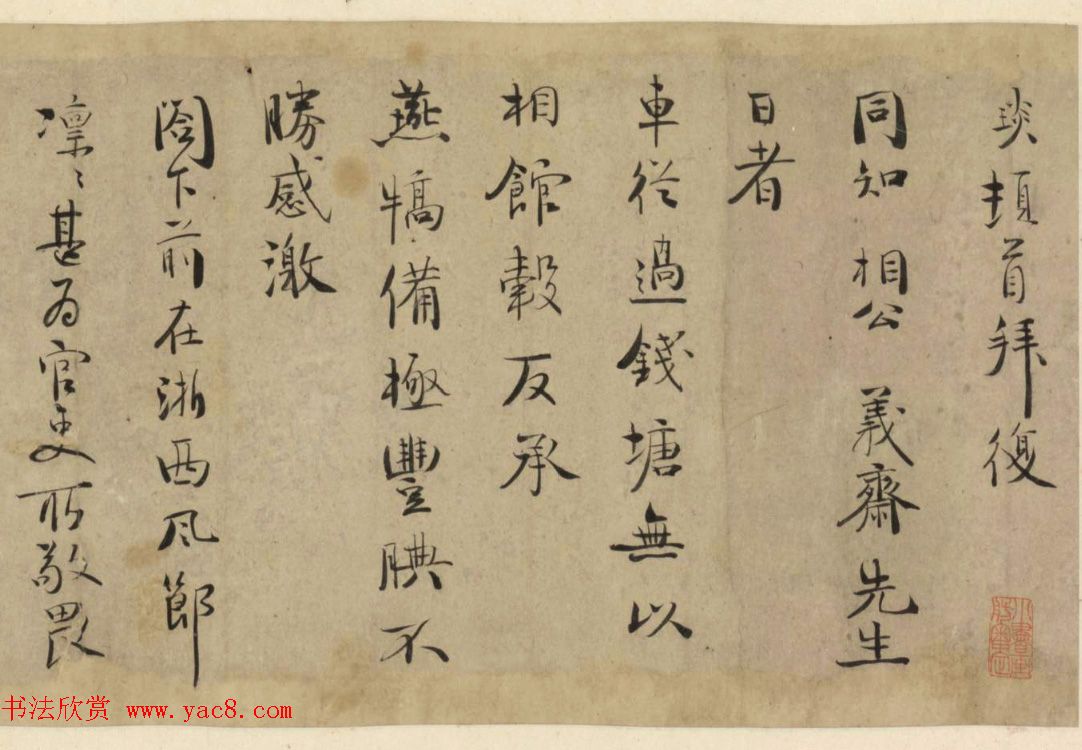 琰頓首拜復
同知 相公 義齋先生
日者
車從過錢塘無以
相館穀反承
燕犒備極豐腆不
勝感激
閤下前在浙西風節
凜〻甚為官吏所敬畏
书法欣赏 www.yac8.com